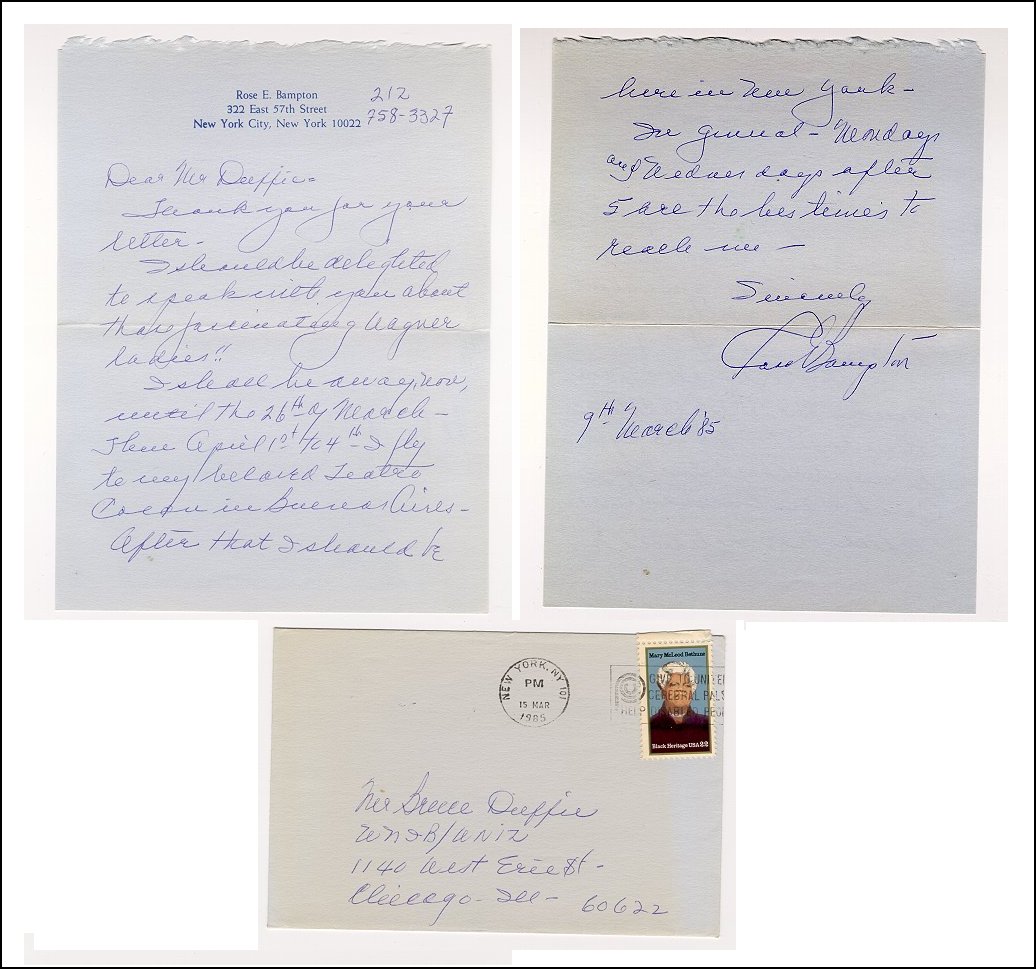 Rose E. Bampton
322 East 57th Street
New York City, New York 10022
212
758-3327
Dear Mr Duffie-
Thank you for your
letter-
I should be delighted
to speak with you about
those fascinating Wagner
ladies!!
I shall be away, now,
until the 26th of March-
Then April 1st to 4th I fly
to my beloved Teatro
Colon in Buenos Aires-
After that I should be
here in New York-
In general - Mondays
and Wednesdays after
5 are the best times to
reach me -
Sincerely
Rose Bampton
9th March '85
NEW YORK, NY 101
PM
15 MAR
1985
Mary McLeod Bethune
GIVE TO UNITED
CEREBRAL PALS
HELP DISABLED PEOP
Black Heritage USA 22
Mr Bruce Duffie
WNIB/WNIZ
1140 West Erie St-
Chicago - Ill - 60622